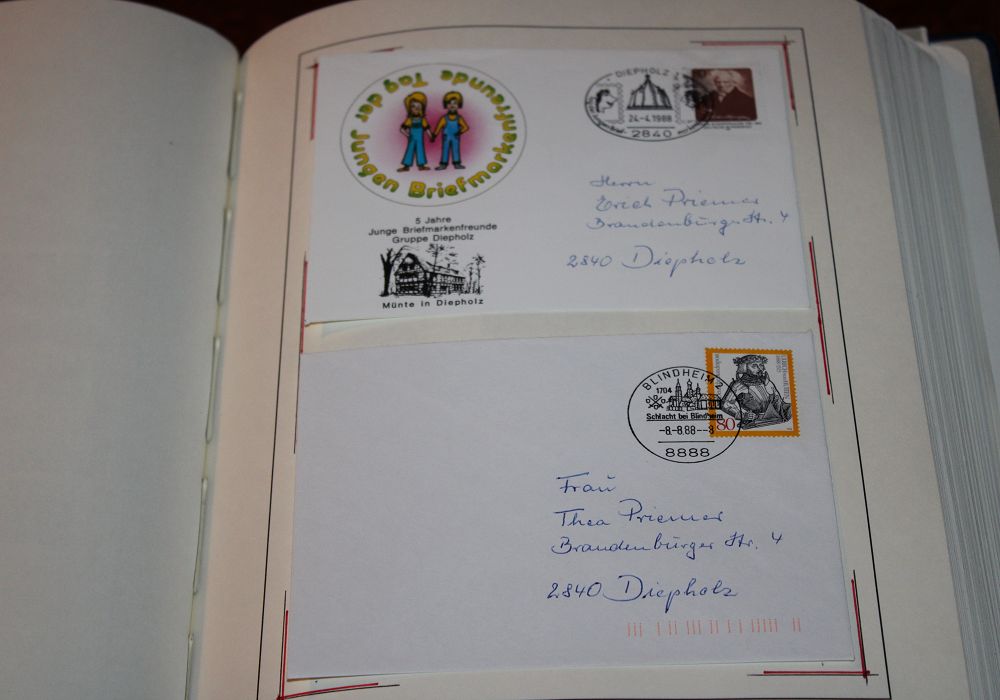 Tag der Jungen Briefmarkenfreunde
5 Jahre
Junge Briefmarkenfreunde
Gruppe Diepholz
Münte in Diepholz
DIEPHOLZ 2
24-4.1988
2840
Herrn
Erich Priemer
Brandenburger Str. 4
2840 Diepholz
BLINDHEIM 2
1704
Schlacht bei Blindheim
-8.-8.88--8
8888
80
Frau
Thea Priemer
Brandenbürger Str. 4
2840 Diepholz